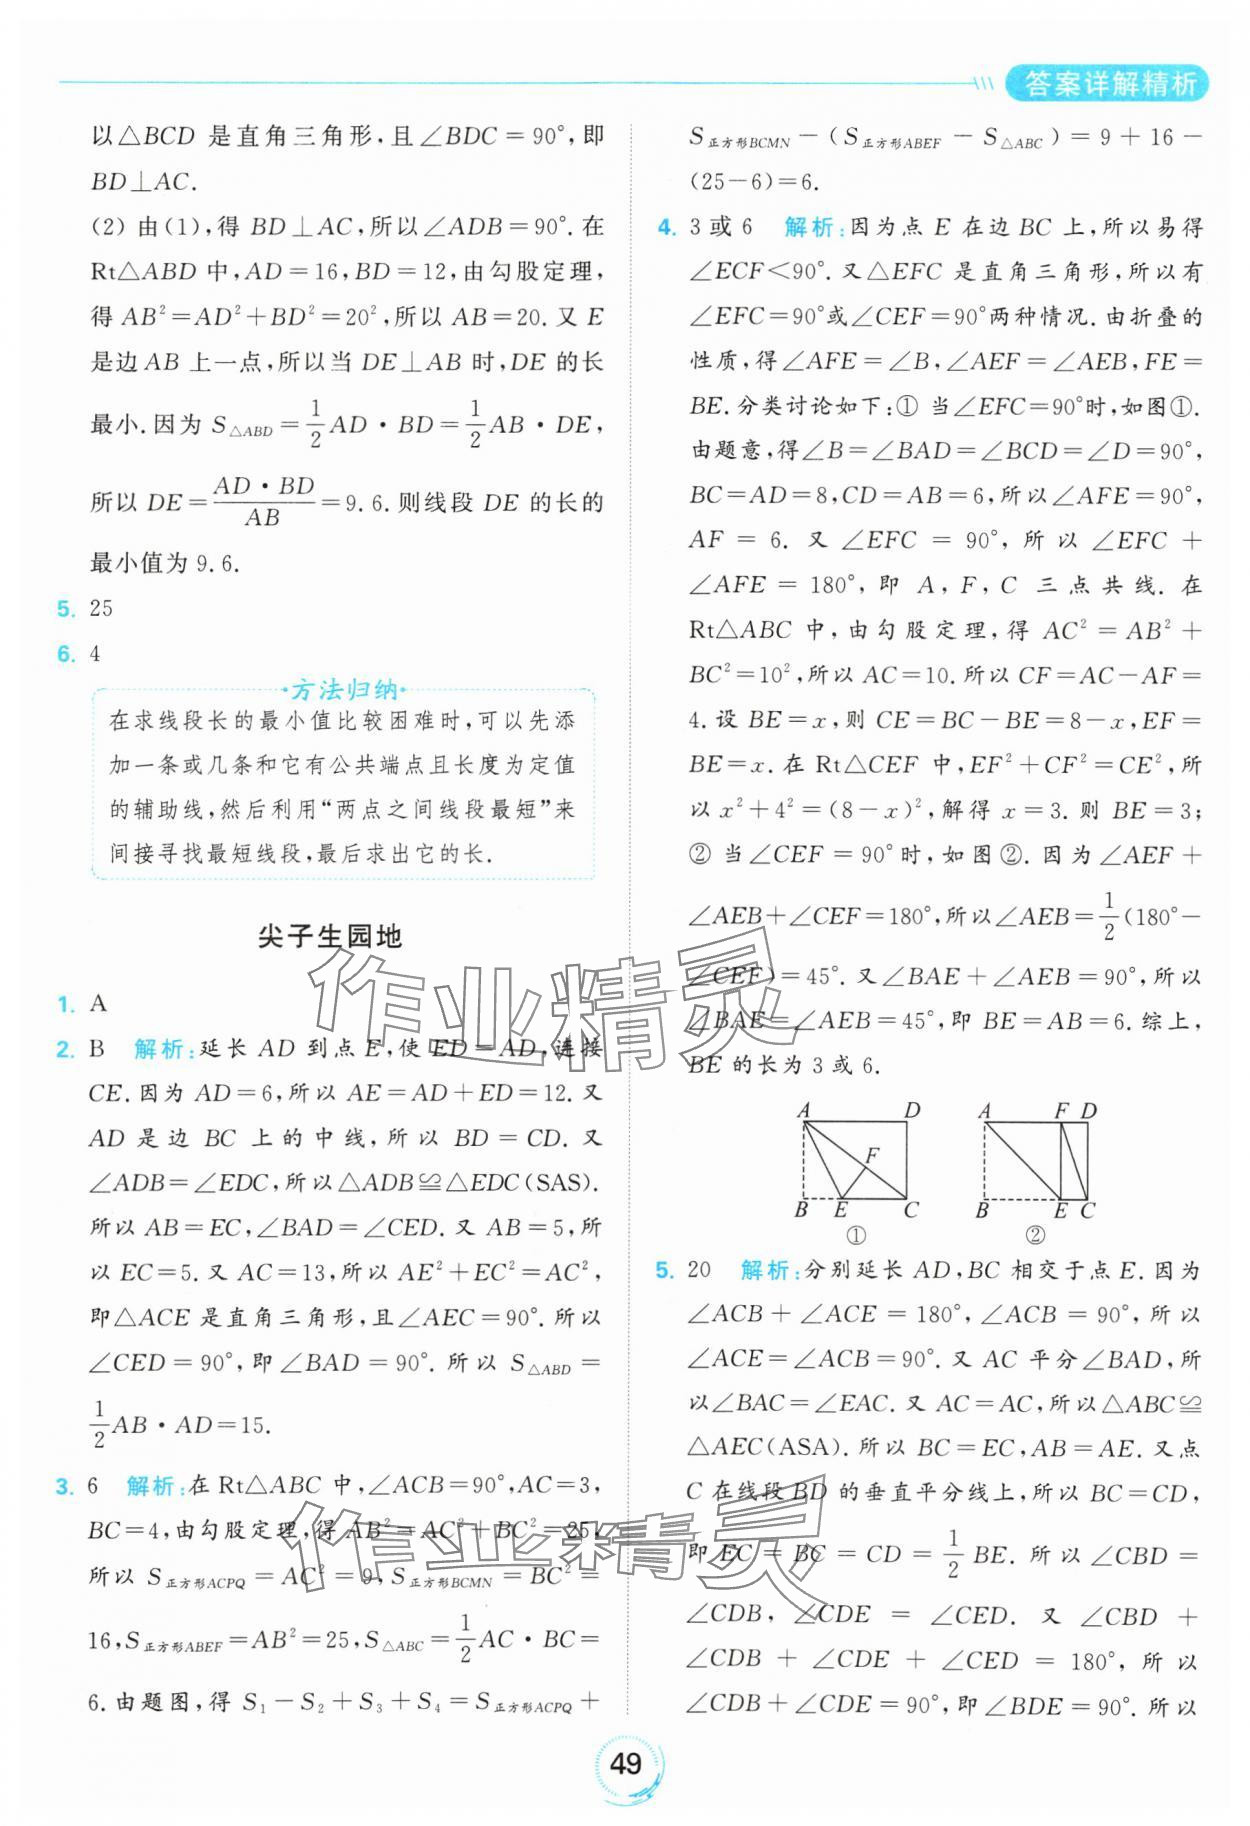 答案详解精析
以△BCD 是直角三角形,且∠BDC=90°,即
BD⊥AC.
(2) 由(1),得 BD⊥AC,所以∠ADB=90°.在
Rt△ABD 中,AD=16,BD=12,由勾股定理,
得 AB²=AD²+BD²=20²,所以 AB=20.又 E
是边 AB 上一点,所以当 DE⊥AB 时,DE 的长
最小.因为 S△ABD=1/2AD·BD=1/2AB·DE,
所以 DE=AD·BD/AB=9.6.则线段 DE 的长的
最小值为 9.6.
5. 25
6. 4
·方法归纳·
在求线段长的最小值比较困难时,可以先添
加一条或几条和它有公共端点且长度为定值
的辅助线,然后利用“两点之间线段最短”来
间接寻找最短线段,最后求出它的长.
尖子生园地
1. A
2. B 解析:延长 AD 到点 E,使 ED=AD,连接
CE.因为 AD=6,所以 AE=AD+ED=12.又
AD 是边 BC 上的中线,所以 BD=CD.又
∠ADB=∠EDC,所以△ADB≌△EDC(SAS).
所以 AB=EC,∠BAD=∠CED.又 AB=5,所
以 EC=5.又 AC=13,所以 AE²+EC²=AC²,
即△ACE 是直角三角形,且∠AEC=90°.所以
∠CED=90°,即∠BAD=90°.所以 S△ABD=
1/2AB·AD=15.
3. 6 解析:在 Rt△ABC 中,∠ACB=90°,AC=3,
BC=4,由勾股定理,得 AB²=AC²+BC²=25,
所以 S正方形ACPQ=AC²=9,S正方形BCMN=BC²=
16,S正方形ABEF=AB²=25,S△ABC=1/2AC·BC=
6.由题图,得 S₁-S₂+S₃+S₄=S正方形ACPQ+
S正方形BCMN-(S正方形ABEF-S△ABC)=9+16-
(25-6)=6.
4. 3或6 解析:因为点 E 在边 BC 上,所以易得
∠ECF<90°.又△EFC 是直角三角形,所以有
∠EFC=90°或∠CEF=90°两种情况.由折叠的
性质,得∠AFE=∠B,∠AEF=∠AEB,FE=
BE.分类讨论如下:① 当∠EFC=90°时,如图①.
由题意,得∠B=∠BAD=∠BCD=∠D=90°,
BC=AD=8,CD=AB=6,所以∠AFE=90°,
AF=6.又∠EFC=90°,所以∠EFC+
∠AFE=180°,即 A,F,C 三点共线.在
Rt△ABC 中,由勾股定理,得 AC²=AB²+
BC²=10²,所以 AC=10.所以 CF=AC-AF=
4.设 BE=x,则 CE=BC-BE=8-x,EF=
BE=x.在 Rt△CEF 中,EF²+CF²=CE²,所
以 x²+4²=(8-x)²,解得 x=3.则 BE=3;
② 当∠CEF=90°时,如图②.因为∠AEF+
∠AEB+∠CEF=180°,所以∠AEB=1/2(180°-
∠CEF)=45°.又∠BAE+∠AEB=90°,所以
∠BAE=∠AEB=45°,即 BE=AB=6.综上,
BE 的长为 3 或 6.
A D A F D
F
B E C B E C
① ②
5. 20 解析:分别延长 AD,BC 相交于点 E.因为
∠ACB+∠ACE=180°,∠ACB=90°,所以
∠ACE=∠ACB=90°.又 AC 平分∠BAD,所
以∠BAC=∠EAC.又 AC=AC,所以△ABC≌
△AEC(ASA).所以 BC=EC,AB=AE.又点
C 在线段 BD 的垂直平分线上,所以 BC=CD,
即 EC=BC=CD=1/2BE.所以∠CBD=
∠CDB,∠CDE=∠CED.又∠CBD+
∠CDB+∠CDE+∠CED=180°,所以
∠CDB+∠CDE=90°,即∠BDE=90°.所以
作业精灵
作业精灵
49